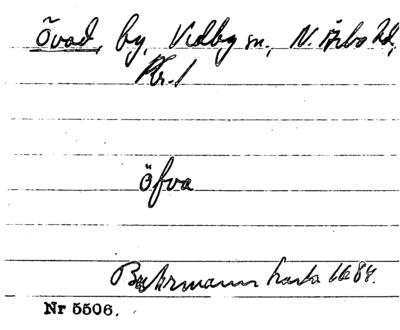 Övad, by, Vidby sn, N. Åsbo hd,
Kr. l
öfva
Buhrmann karta 1684.
Nr 5506.